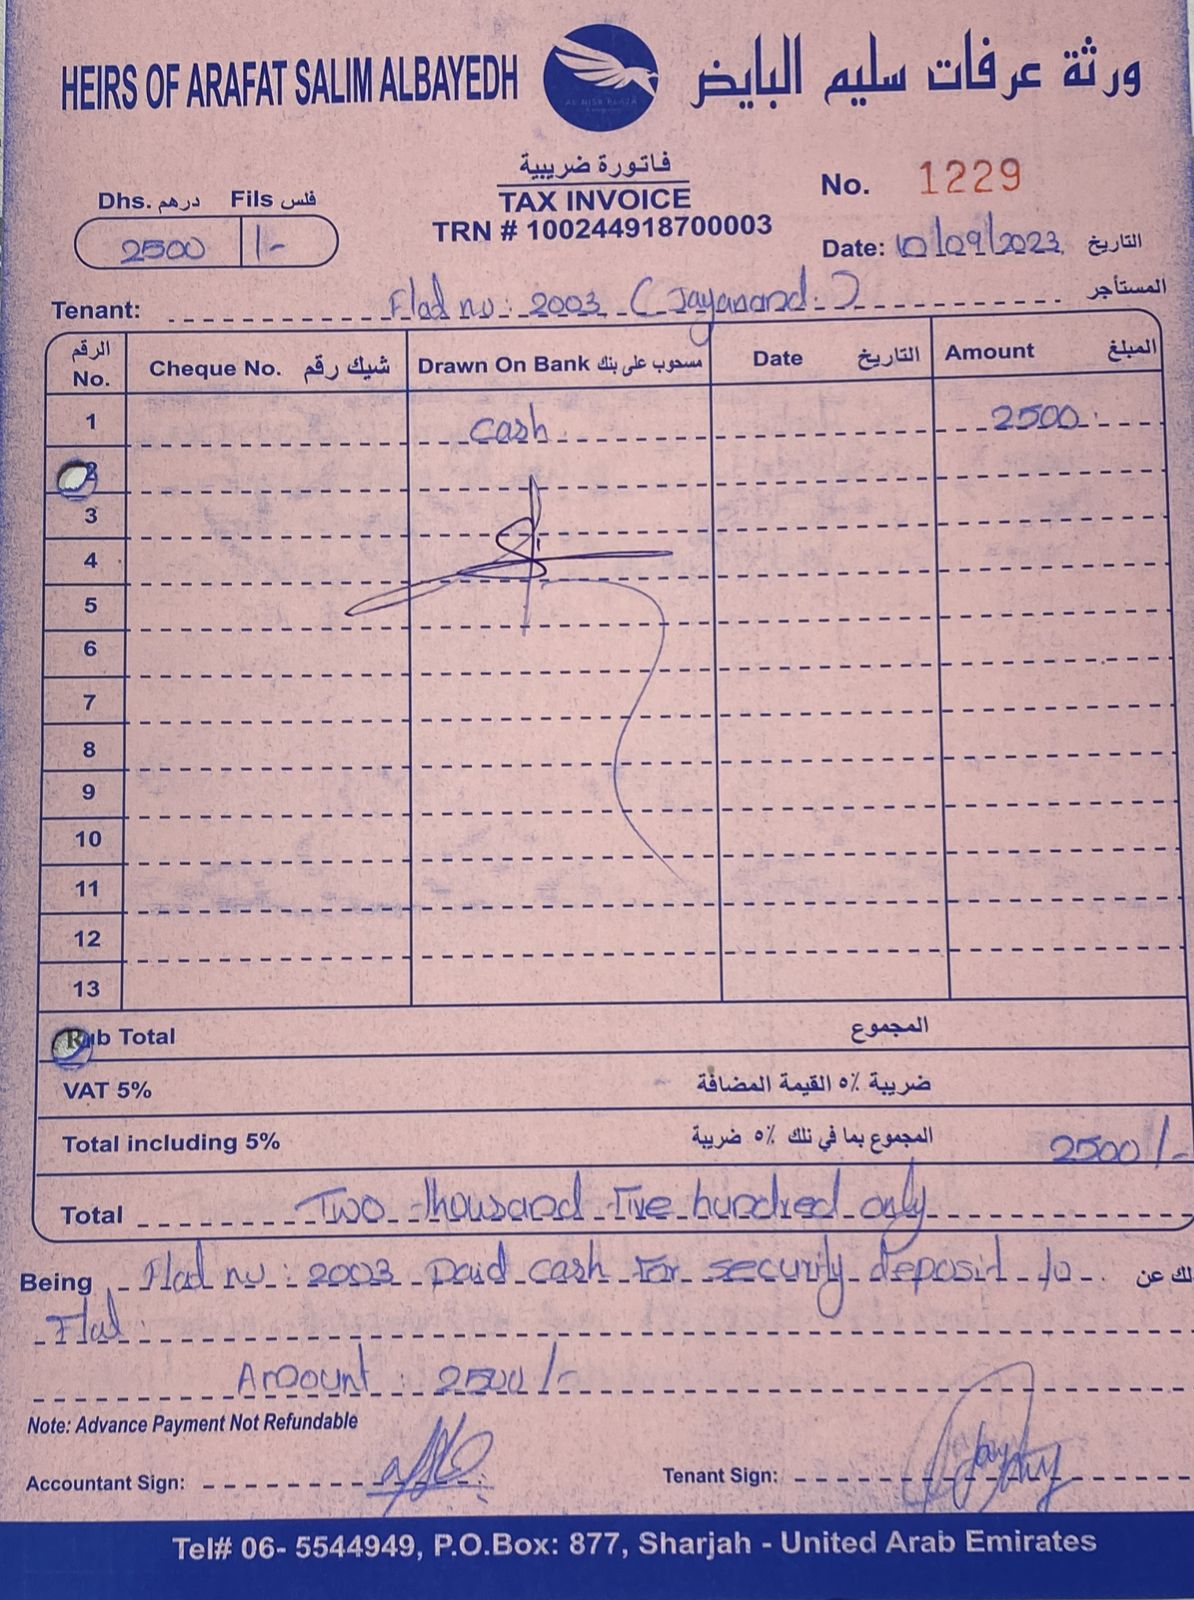 HEIRS OF ARAFAT SALIM ALBAYEDH
AL NISR PLAZA
ورثة عرفات سليم البايض
فاتورة ضريبية
TAX INVOICE
TRN # 100244918700003
No. 1229
Dhs. درهم Fils فلس
2500 /-
Date: 10/09/2023 التاريخ
Tenant: Flad no: 2003 (Jayanand.) المستأجر
الرقم No. Cheque No. شيك رقم Drawn On Bank مسحوب على بنك Date التاريخ Amount المبلغ
1 cash 2500
2
3
4
5
6
7
8
9
10
11
12
13
ub Total المجموع
VAT 5% ضريبة ٥٪ القيمة المضافة
Total including 5% المجموع بما في ذلك ٥٪ ضريبة 2500/-
Total Two thousand Five hundred only
Being Flad no: 2003 paid cash For security deposit to لك عن
Flat.
Amount: 2500/-
Note: Advance Payment Not Refundable
Accountant Sign: Tenant Sign:
Tel# 06- 5544949, P.O.Box: 877, Sharjah - United Arab Emirates